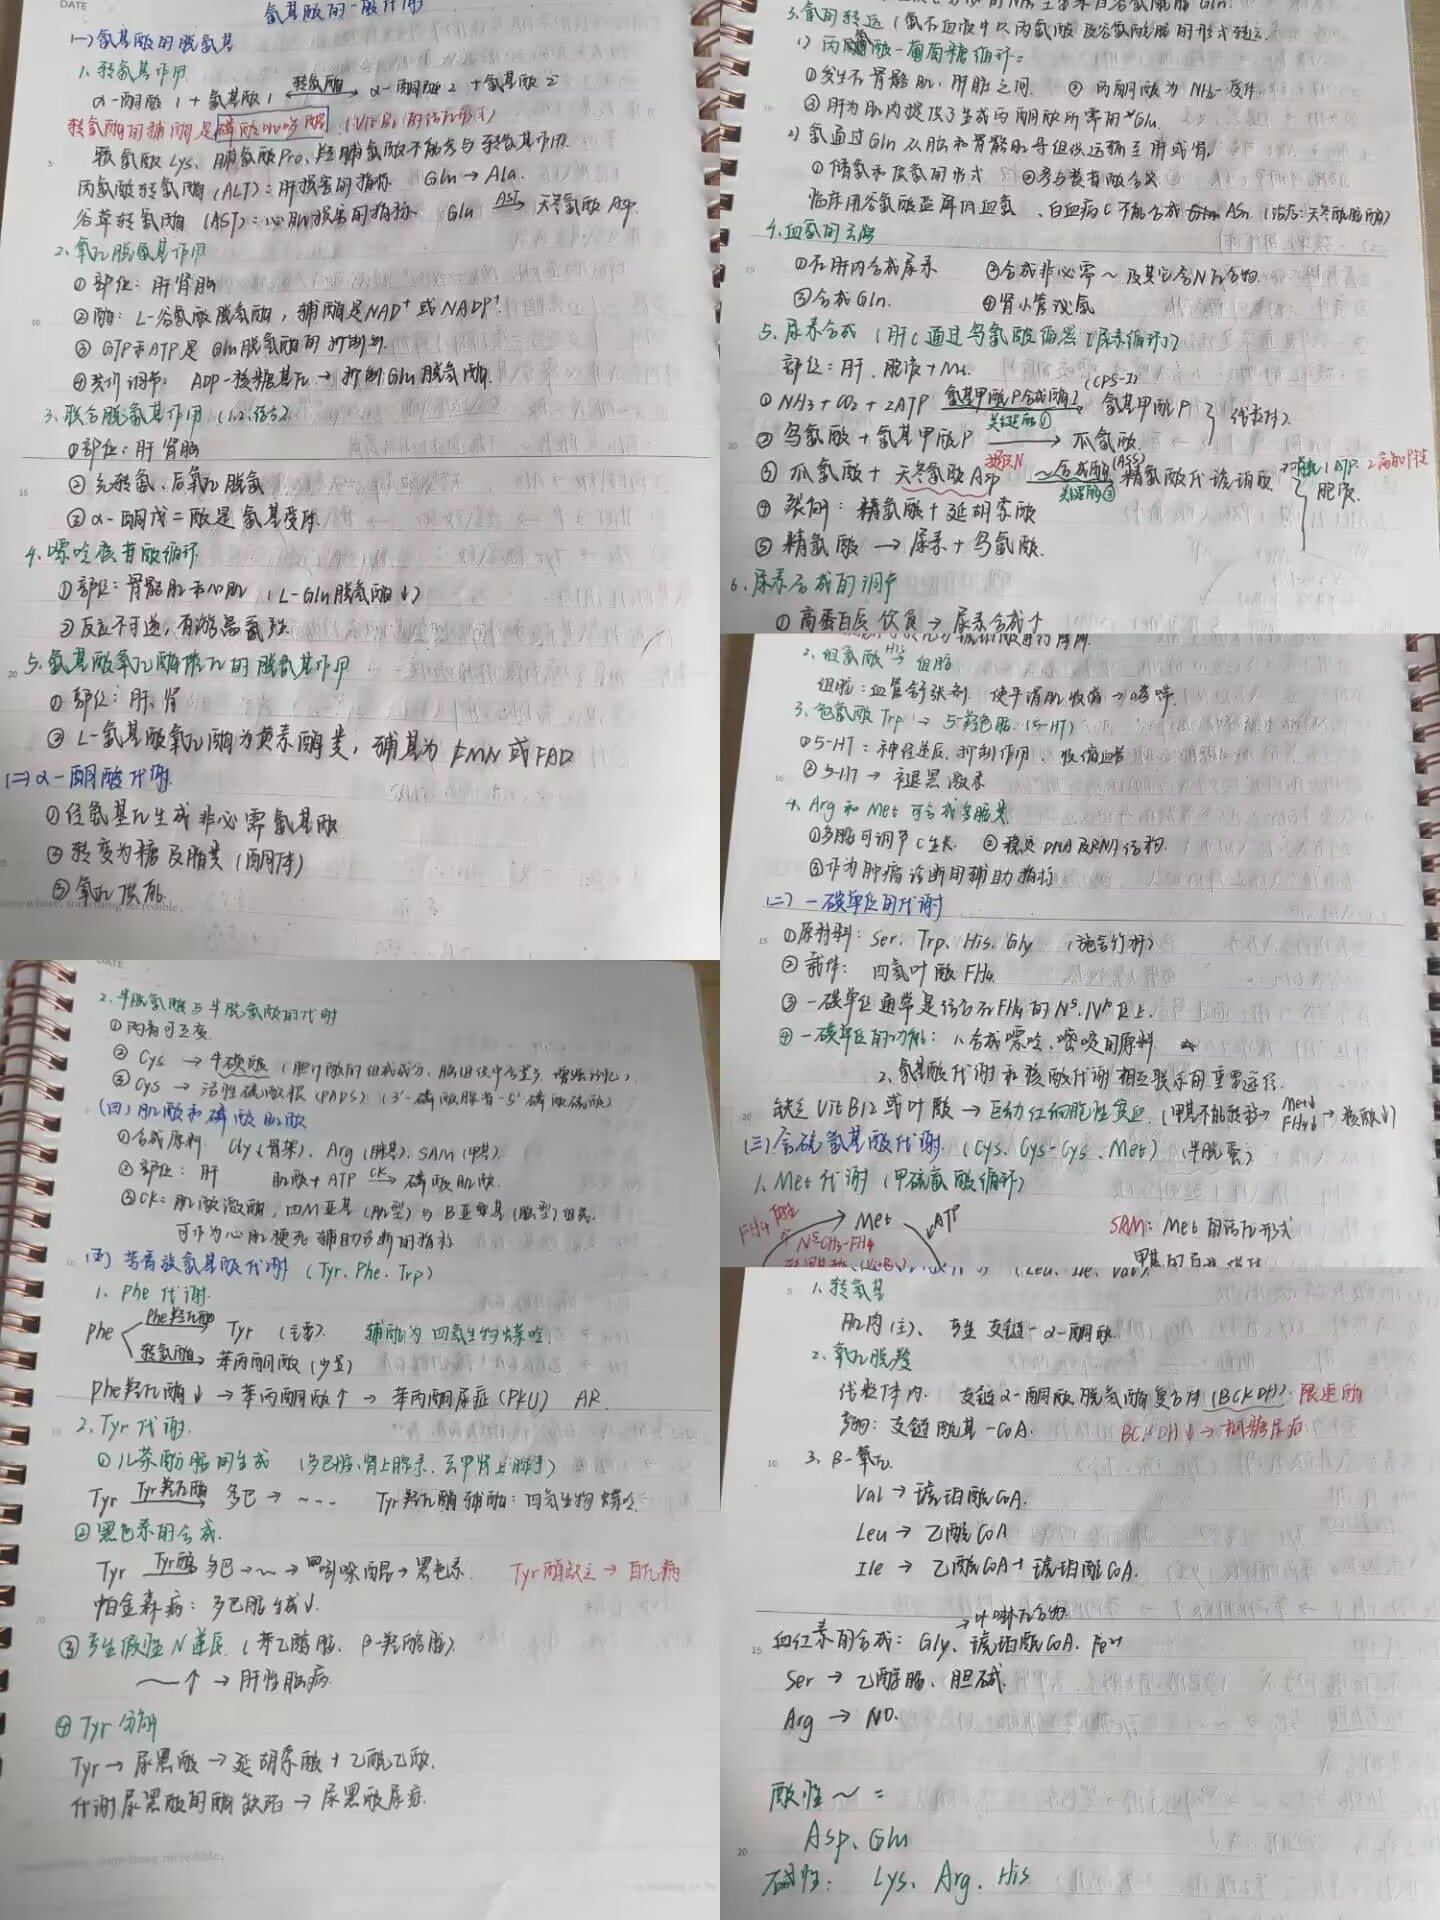 DATE
氨基酸的一般代谢
(一) 氨基酸的脱氨基
1. 转氨基作用
α-酮酸1 + 氨基酸1 ⇌ 转氨酶 α-酮酸2 + 氨基酸2
转氨酶的辅酶是磷酸吡哆醛 (Vit B6的活性形式)
赖氨酸 Lys、脯氨酸 Pro、羟脯氨酸不能参与转氨基作用.
丙氨酸转氨酶 (ALT): 肝损害的指标. Glu → Ala.
谷草转氨酶 (AST): 心肌损害的指标. Glu AST→ 天冬氨酸 Asp.
2. 氧化脱氨基作用
① 部位: 肝肾脑
② 酶: L-谷氨酸脱氢酶, 辅酶是NAD⁺ 或NADP⁺.
③ GTP和ATP是 Glu脱氢酶的抑制剂.
④ 共价调节: ADP-核糖基化 → 抑制Glu脱氢酶.
3. 联合脱氨基作用 (1.2.结合)
① 部位: 肝肾脑
② 先转氨、后氧化脱氨
③ α-酮戊二酸是氨基受体.
4. 嘌呤核苷酸循环
① 部位: 骨骼肌和心肌 (L-Glu脱氢酶↓)
② 反应不可逆, 有游离氨
5. 氨基酸氧化酶催化的脱氨基作用
① 部位: 肝、肾
② L-氨基酸氧化酶为黄素酶类, 辅基为 FMN 或FAD
(二) α-酮酸代谢.
① 经氨基化生成非必需氨基酸
② 转变为糖及脂类 (酮体)
③ 氧化供能.
something incredible.
3. 氨的转运 (氨在血液中以丙氨酸及谷氨酰胺的形式转运.
1) 丙氨酸-葡萄糖循环:
① 发生在骨骼肌、肝脏之间. ② 丙酮酸为 NH₂-受体.
③ 肝为肌肉提供了生成丙酮酸所需的Glu.
2) 氨通过Gln从脑和骨骼肌等组织运输至肝或肾.
① 储氨和运氨的形式
临床用谷氨酸盐降低血氨、白血病C不能合成 Asn. (治疗: 天冬酰胺酶)
4. 血氨的去路
① 在肝内合成尿素 ② 合成非必需~及其它含N化合物.
③ 合成Gln. ④ 肾小管泌氨
5. 尿素合成 (肝C通过鸟氨酸循环[尿素循环])
部位: 肝、胞液+Mt.
① NH₃ + CO₂ + 2ATP 氨基甲酰P合成酶I (CPS-I) 关键酶① 氨基甲酰P } 线粒体)
② 鸟氨酸 + 氨基甲酰P → 瓜氨酸.
③ 瓜氨酸 + 天冬氨酸 Asp 提供N ~合成酶 (ASS) 关键酶② 精氨酸代琥珀酸. 消耗1ATP. 2高能P键 胞液.
④ 裂解: 精氨酸+延胡索酸
⑤ 精氨酸 → 尿素+鸟氨酸.
6. 尿素合成的调节
① 高蛋白质饮食 → 尿素合成↑
2. 组氨酸 His → 组胺
组胺: 血管舒张剂 使平滑肌收缩 → 哮喘.
3. 色氨酸 Trp → 5-羟色胺 (5-HT)
① 5-HT: 神经递质、抑制作用、收缩血管
② 5-HT → 褪黑激素
4. Arg 和 Met 可合成多胺类
① 多胺可调节C生长. ② 稳定DNA及RNA结构.
③ 作为肿瘤诊断用辅助指标
(二) 一碳单位的代谢
① 原材料: Ser、Trp、His、Gly (施舍竹杆)
② 载体: 四氢叶酸 FH₄.
③ 一碳单位通常是结合在FH₄的N⁵、N¹⁰位上.
④ 一碳单位的功能: 1、合成嘌呤、嘧啶的原料
2、氨基酸代谢和核酸代谢相互联系的重要途径.
缺乏 Vit B12或叶酸 → 巨幼红细胞性贫血. (甲基不能转移 → Met↓ FH₄↓ → 核酸↓)
(三) 含硫氨基酸代谢. (Cys、Cys-Cys、Met) (半胱蛋)
1. Met 代谢 (甲硫氨酸循环)
FH₄ Met ATP
N⁵CH₃-FH₄
SAM: Met 的活化形式
DATE
2. 半胱氨酸与半胱氨酸的代谢
① 两者可互变.
② Cys → 牛磺酸 (胆汁酸的组成成分、脑组织中含量多、增强记忆).
③ Cys → 活性硫酸根 (PAPS) (3'-磷酸腺苷-5'-磷酸硫酸)
(四) 肌酸和磷酸肌酸
① 合成原料: Gly (骨架)、Arg (脒基)、SAM (甲基).
② 部位: 肝 肌酸+ATP CK→ 磷酸肌酸.
③ CK: 肌酸激酶, 由M亚基 (肌型) 与B亚基 (脑型) 组成.
可作为心肌梗死辅助诊断的指标
(五) 芳香族氨基酸代谢 (Tyr、Phe、Trp)
1. Phe 代谢.
Phe Phe羟化酶→ Tyr (主要). 辅酶为四氢生物蝶呤.
转氨酶→ 苯丙酮酸 (少量)
Phe羟化酶↓ → 苯丙酮酸↑ → 苯丙酮尿症 (PKU) AR.
2. Tyr 代谢.
① 儿茶酚胺的生成 (多巴胺、肾上腺素、去甲肾上腺素)
Tyr Tyr羟化酶→ 多巴 → ~... Tyr羟化酶 辅酶: 四氢生物蝶呤.
② 黑色素的合成.
Tyr Tyr酶→ 多巴 → ~ → 吲哚醌 → 黑色素. Tyr酶缺乏 → 白化病
帕金森病: 多巴胺生成↓.
③ 产生假性N递质. (苯乙醇胺、β-羟酪胺).
~↑ → 肝性脑病.
④ Tyr 分解
Tyr → 尿黑酸 → 延胡索酸 + 乙酰乙酸.
代谢尿黑酸的酶缺陷 → 尿黑酸尿症.
something incredible.
(Leu、Ile、Val)
1. 转氨基
肌肉 (主)、产生 支链-α-酮酸.
2. 氧化脱羧
线粒体内. 支链α-酮酸脱氢酶复合体 (BCKDH). 限速酶
产物: 支链酰基-CoA. BCKDH↓ → 枫糖尿症
3. β-氧化.
Val → 琥珀酰CoA.
Leu → 乙酰CoA
Ile → 乙酰CoA + 琥珀酰CoA.
→ 卟啉化合物
血红素的合成: Gly、琥珀酰CoA、Fe²⁺
Ser → 乙醇胺、胆碱.
Arg → NO.
酸性~ =
Asp、Glu
碱性: Lys、Arg、His